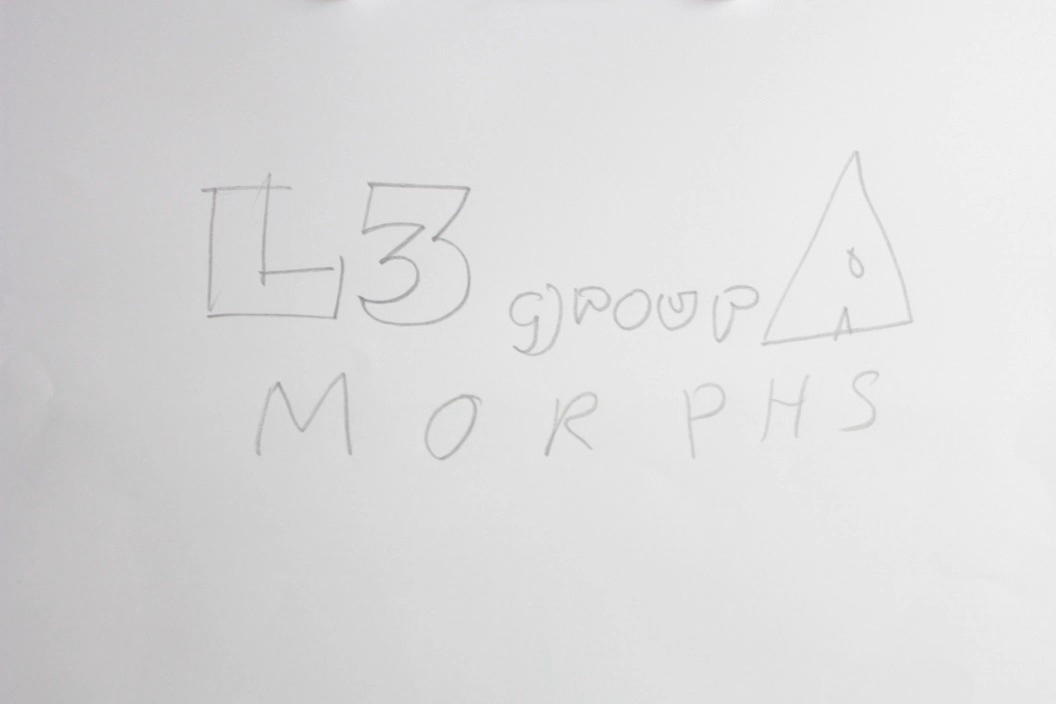 L3 group A
MORPHS